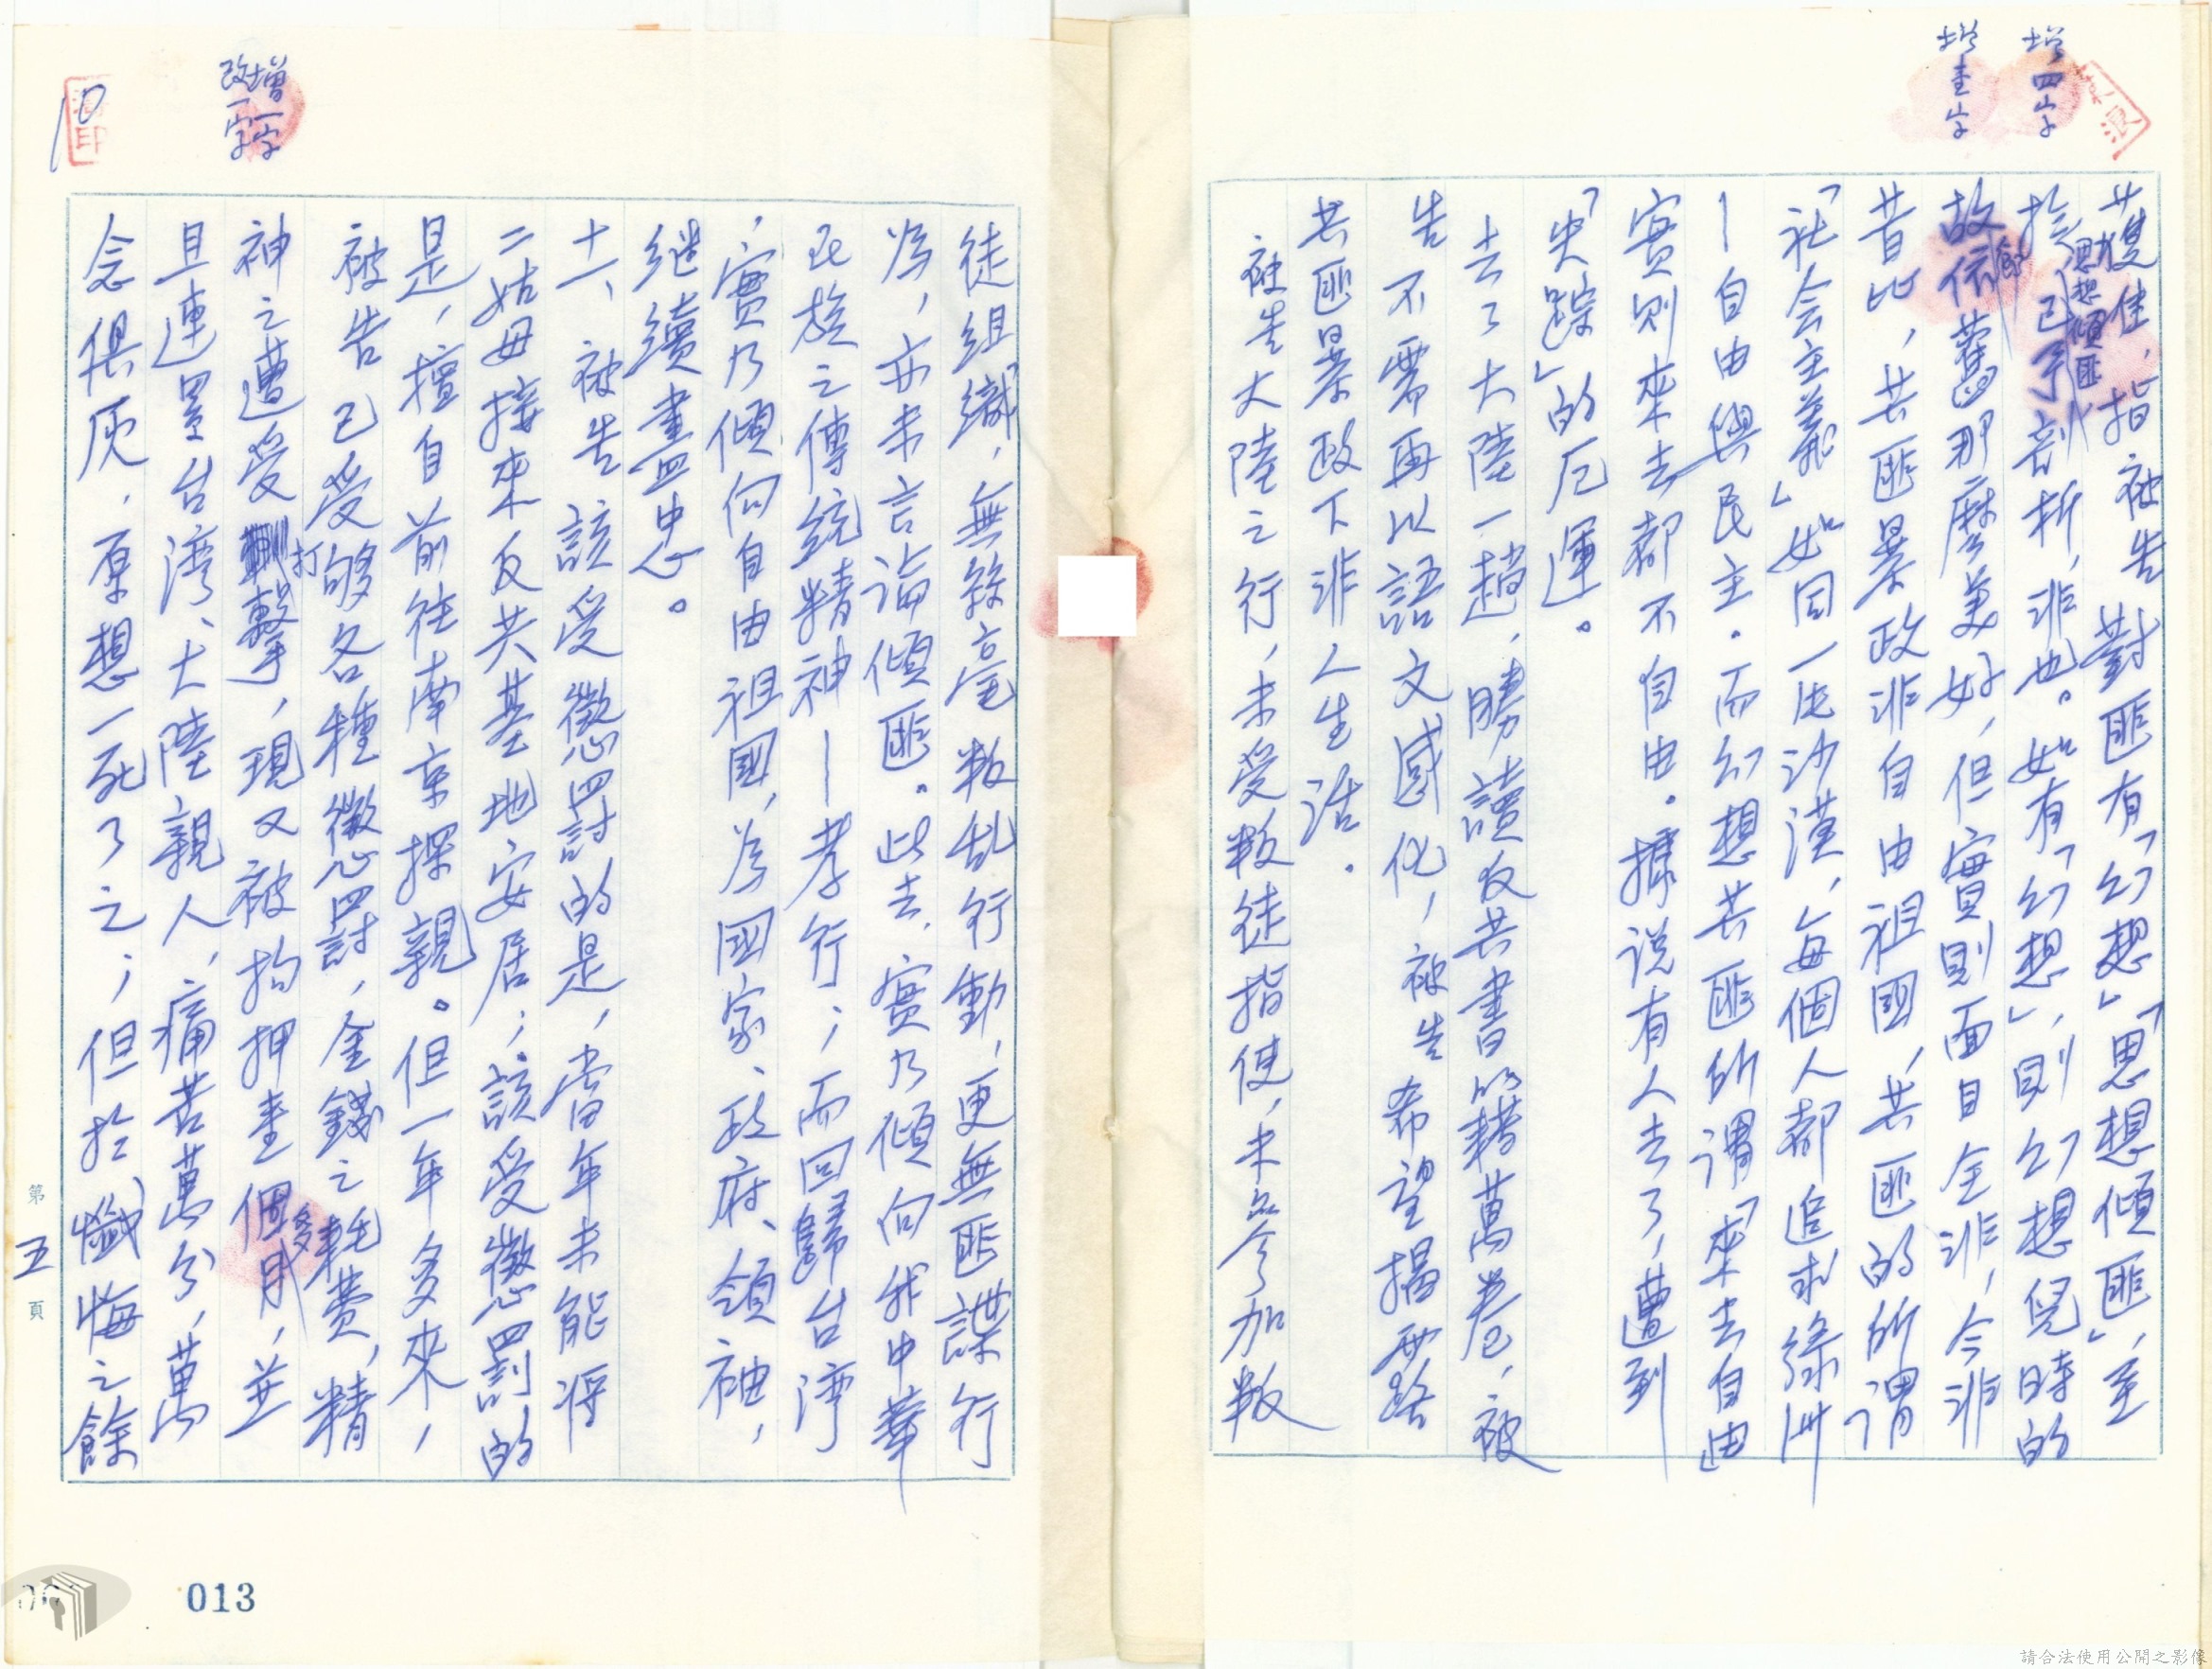 增四字
增壹字
獲佳,指被告對匪有「幻想」「思想傾匪」,至
於「思想傾匪」已予剖析,非也。如有「幻想」,則幻想兒時的
故鄉依舊那麼美好,但實則面目全非,今非
昔比,共匪暴政非自由祖國,共匪的所謂
「社会主義」如同一片沙漠,每個人都追求綠洲
—自由與民主。而幻想共匪所謂「來去自由」
實則來去都不自由。據说有人去了,遭到
「失踪」的厄運。
去了大陸一趟,勝讀反共書籍萬卷,被
告不需再以語文感化,被告希望揭露
共匪暴政下非人生活。
被告大陸之行,未受叛徒指使,未參加叛
徒組織,無絲毫叛乱行動,更無匪諜行
為,亦未言論傾匪。此去,實乃傾向我中華
民族之傳統精神—孝行;而回歸台湾
,實乃傾向自由祖國,為國家、政府、領袖,
继續盡忠。
十一、被告該受懲罰的是,當年未能将
二姑母接來反共基地安居;該受懲罰的
是,擅自前往南京探親。但一年多來,
被告已受够各種懲罰,金錢之耗費,精
神之遭受打擊,現又被拘押壹個多月,並
且連累台湾、大陸親人,痛苦萬分,萬
念俱灰,原想一死了之;但於懺悔之餘
增一字
改一字
印
10
第五頁
013
請合法使用公開之影像